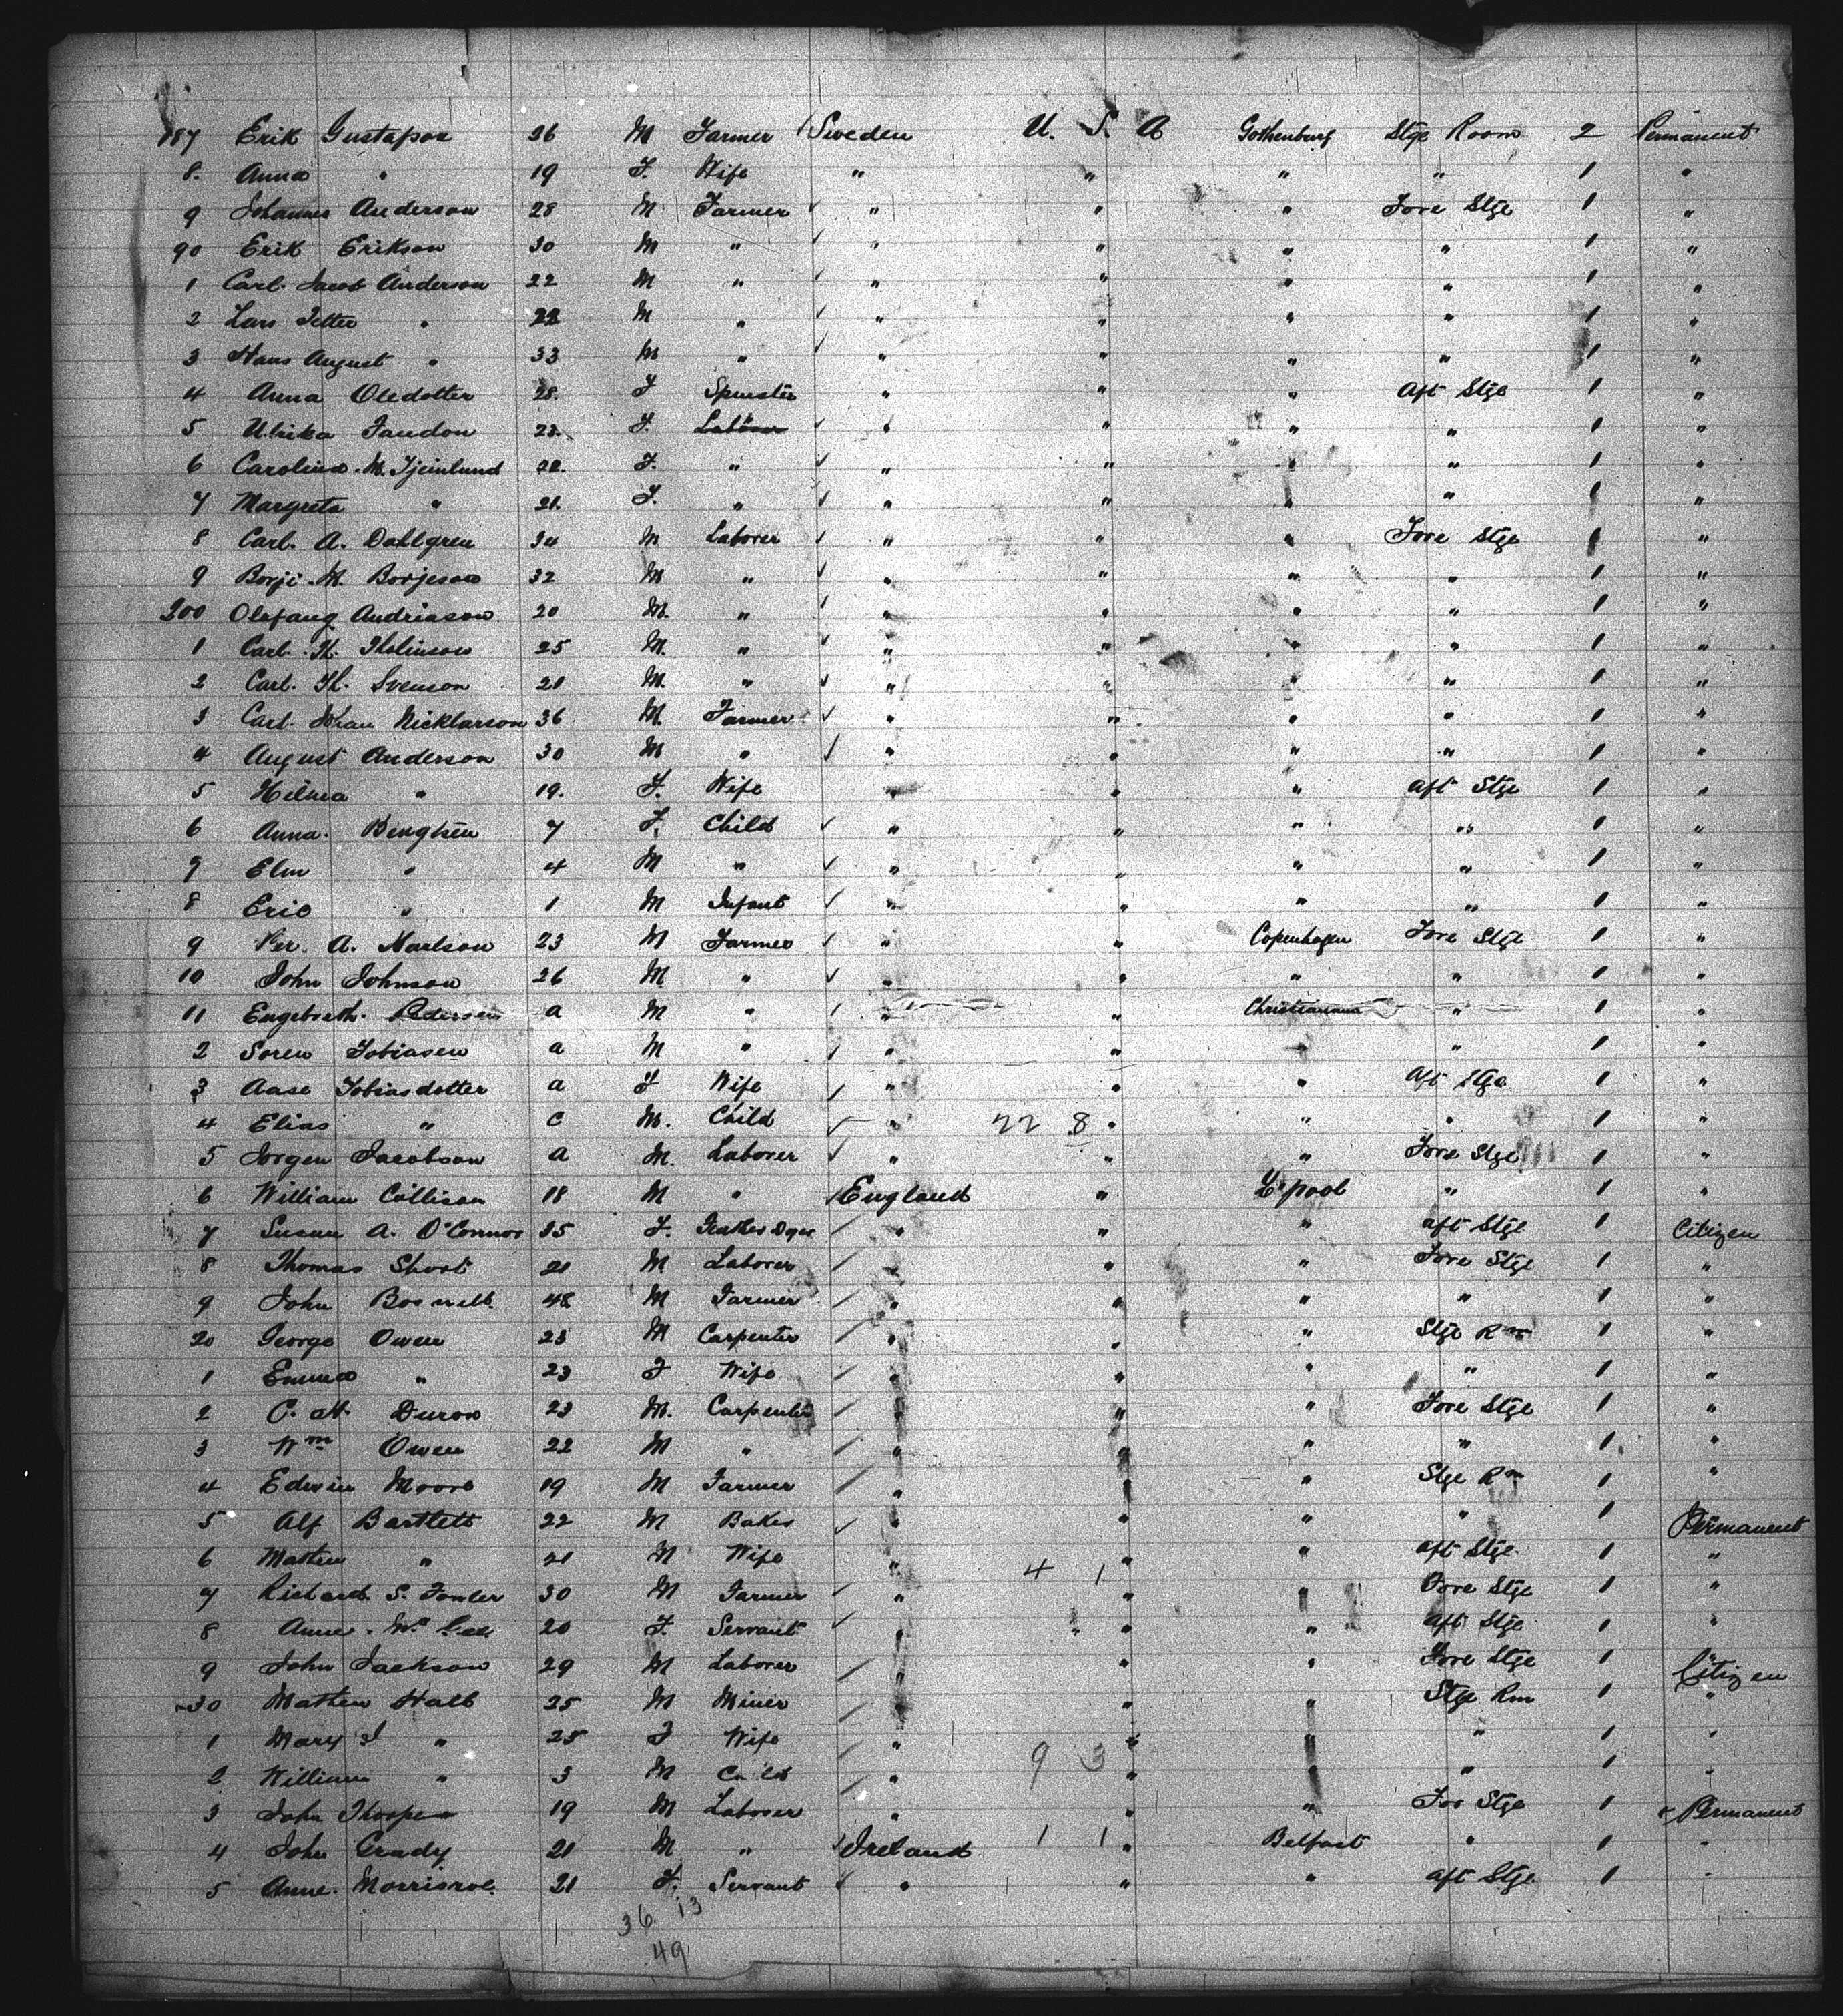 187 Erik Gustafson 26 M Farmer Sweden U. S. A Gothenburg Stge Room 2 Permanent
8. Anna " 19 F. Wife " " " " 1 "
9 Johannes Anderson 28 M Farmer " " " Fore Stge 1 "
90 Erik Erikson 30 M " " " " " 1 "
1 Carl Jacob Anderson 22 M " " " " " 1 "
2 Lars Petter " 22 M " " " " " 1 "
3 Hans August " 33 M " " " " " 1 "
4 Anna Oledotter 28. F Spinster " " " Aft Stge 1 "
5 Ulrika 23. F. " " " " 1 "
6 Carolina M. 22. F. " " " " " 1 "
7 Margreta " 21. F. " " " " " 1 "
8 Carl. A. Dahlgren 34 M Laborer " " " Fore Stge 1 "
9 Borji M. Borjeson 32 M " " " " " 1 "
200 Andriason 20 M. " " " " " 1 "
1 Carl. 25 M. " " " " " 1 "
2 Carl. Svenson 21 M. " " " " " 1 "
3 Carl. Johan Nicklarson 36 M. Farmer " " " " 1 "
4 August Anderson 30 M " " " " " 1 "
5 Hilma " 19. F. Wife " " " Aft Stge 1 "
6 Anna. Bengtsen 7 F. Child " " " " 1 "
7 Elin " 4 M " " " " " 1 "
8 Eric " 1 M Infant " " " " 1 "
9 Per. A. Karlson 23 M Farmer " " Copenhagen Fore Stge 1 "
10 John Johnson 26 M " " " " " 1 "
11 Engebreth. Pedersen a M " " " Christiania " 1 "
2 Soren Tobiasen a M " " " " " 1 "
3 Aase Tobiasdotter a F Wife " " " Aft Stge 1 "
4 Elias " c M. Child " 22 8 " " " 1 "
5 Jorgen Jacobson a M. Laborer " " " Fore Stge 1 "
6 William Collison 18 M " England " L'pool " 1 "
7 Susan A. O'Connor 35 F. " " " Aft Stge 1 Citizen
8 Thomas Short 21 M Laborer " " " Fore Stge 1 "
9 John 48 M Farmer " " " " 1 "
20 George Owen 23 M Carpenter " " " Stge Rm 1 "
1 Emma " 23 F Wife " " " " 1 "
2 C. H. 23 M. Carpenter " " " Fore Stge 1 "
3 Wm Owen 22 M " " " " " 1 "
4 Edwin Moore 19 M Farmer " " Stge Rm 1 "
5 Alf Bartlett 22 M Baker " " " " 1 Permanent
6 " 21 Wife " 4 1 " " Aft Stge 1 "
7 Richard S. Fowler 30 M Farmer " " " Fore Stge 1 "
8 Anne. 20 F. Servant " " " Aft Stge 1 "
9 John Jackson 29 M Laborer " " " Fore Stge 1 Citizen
30 Mathew Hall 25 M Miner " " " Stge Rm 1 "
1 Mary " 25 F Wife " " " " 1 "
2 William " 3 M Child " 9 3 " " " 1 "
3 John Thorpe 19 M Laborer " " " For Stge 1 Permanent
4 John Grady 21 M " Ireland 1 1 " Belfast " 1 "
5 Anne. Morrisroe. 21 F. Servant " " " Aft Stge 1 "
36 13
49